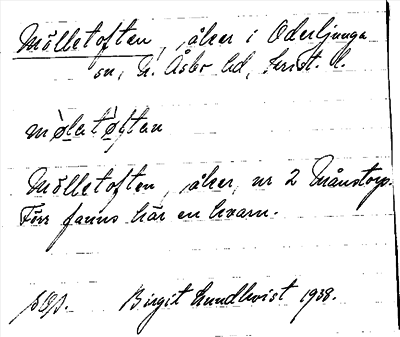 Mölletoften, åker i Oderljunga
sn, N. Åsbo hd, Krist. l.
mø̀letòftan
Mölletoften, åker, nr 2 Månstorp.
Förr fanns här en kvarn.
Birgit Lundkvist 1938.